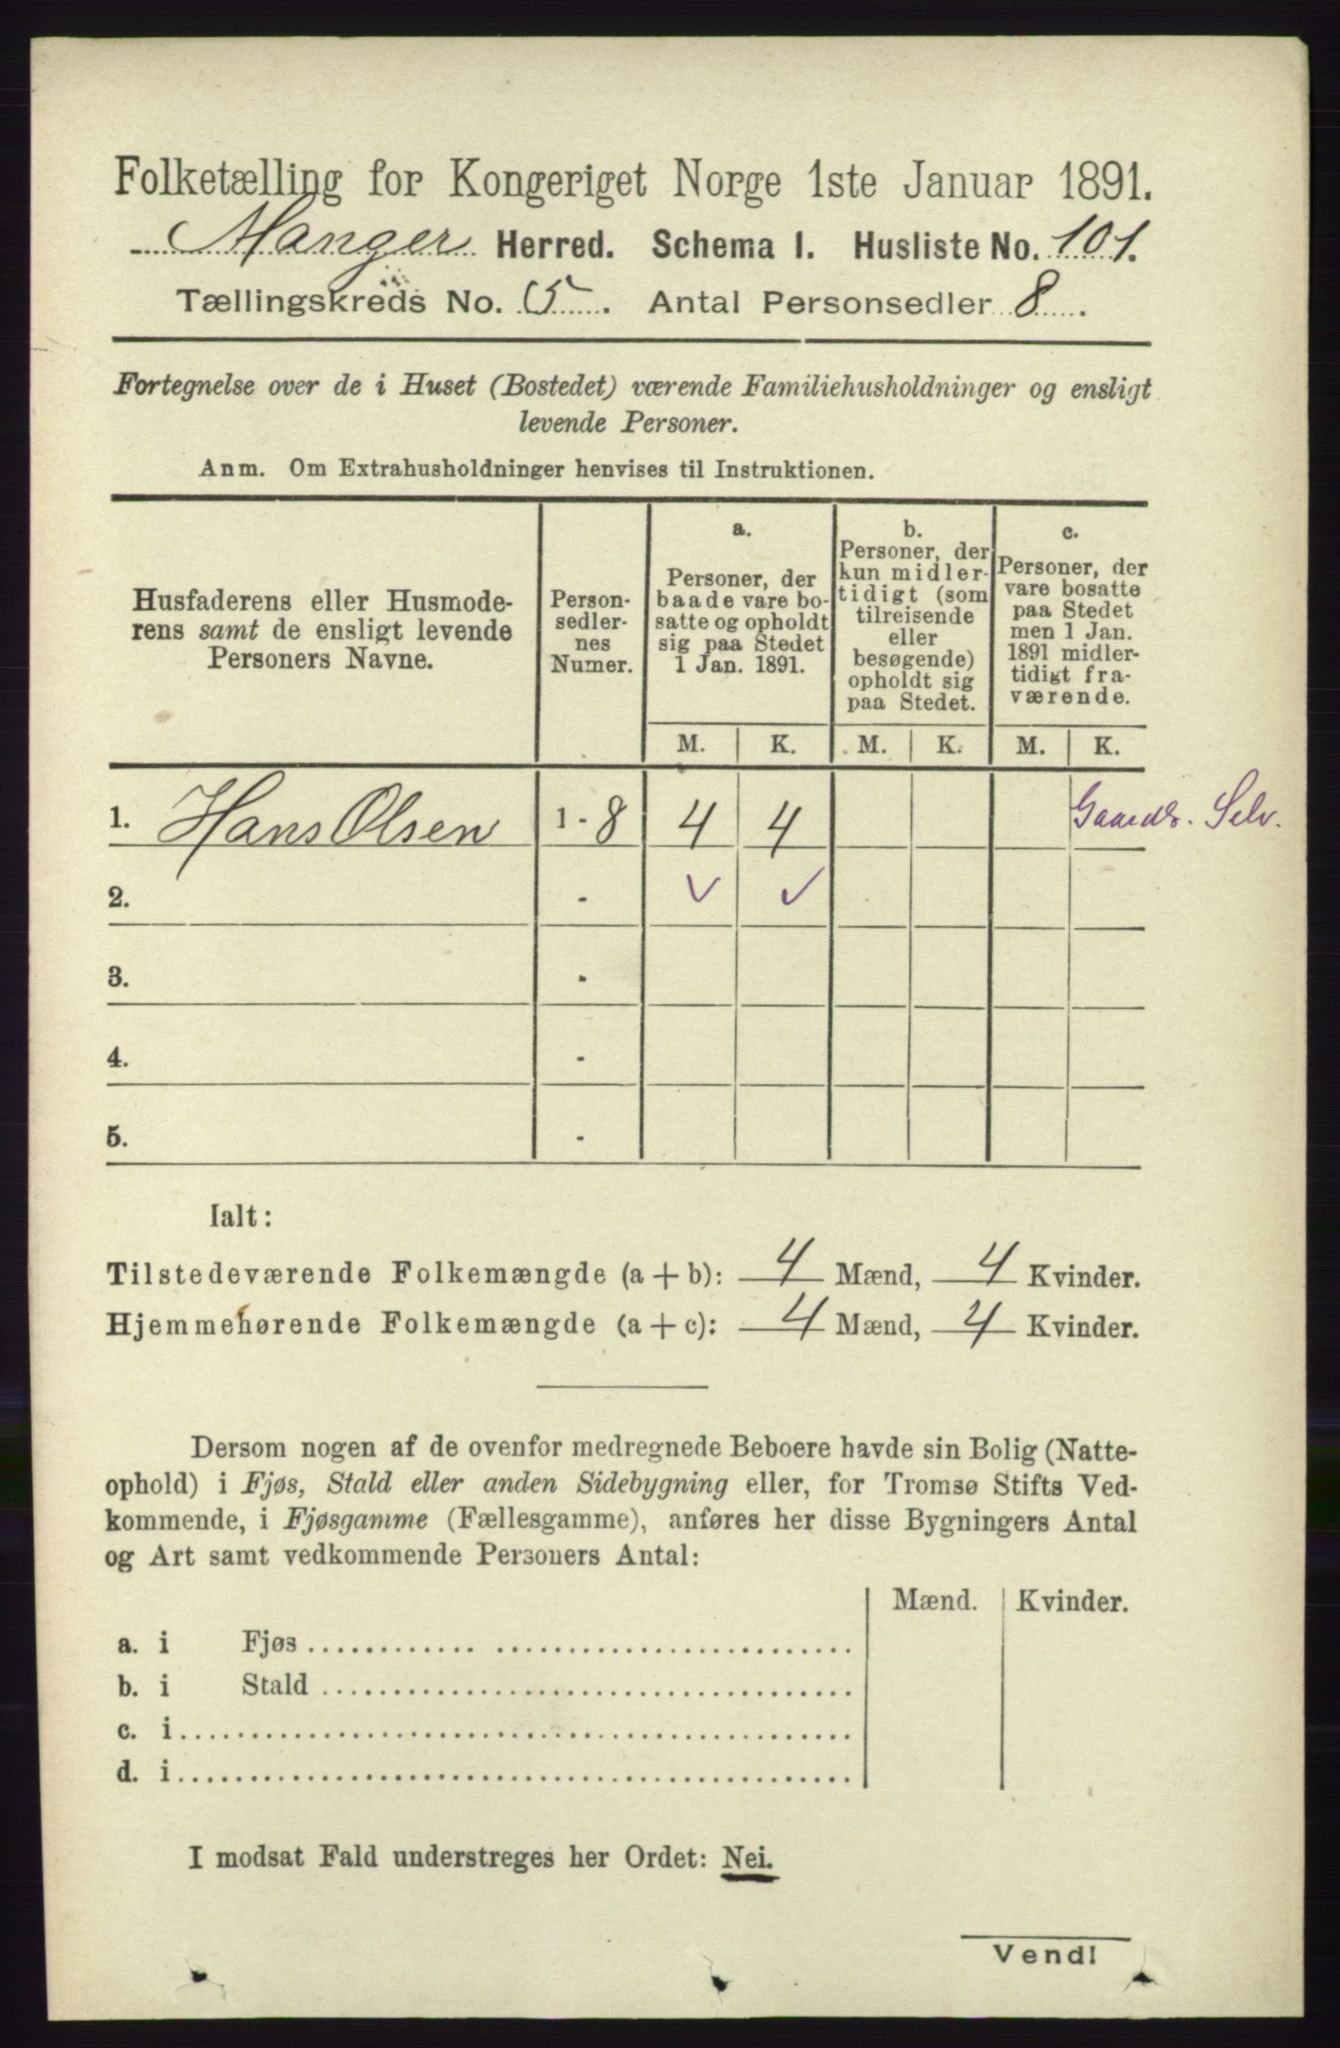 Folketælling for Kongeriget Norge 1ste Januar 1891.
Manger Herred. Schema I. Husliste No. 101.
Tællingskreds No. 5. Antal Personsedler 8.
Fortegnelse over de i Huset (Bostedet) værende Familiehusholdninger og ensligt
levende Personer.
Anm. Om Extrahusholdninger henvises til Instruktionen.
Husfaderens eller Husmode-
rens samt de ensligt levende
Personers Navne.
Person-
sedler-
nes
Numer.
a.
Personer, der
baade vare bo-
satte og opholdt
sig paa Stedet
1 Jan. 1891.
b.
Personer, der
kun midler-
tidigt (som
tilreisende
eller
besøgende)
opholdt sig
paa Stedet.
c.
Personer, der
vare bosatte
paa Stedet
men 1 Jan.
1891 midler-
tidigt fra-
værende.
M. K. M. K. M. K.
1. Hans Olsen 1 - 8 4 4 Gaardb. Selv.
2. -
3. -
4. -
5. -
Ialt:
Tilstedeværende Folkemængde (a + b): 4 Mænd, 4 Kvinder.
Hjemmehørende Folkemængde (a + c): 4 Mænd, 4 Kvinder.
Dersom nogen af de ovenfor medregnede Beboere havde sin Bolig (Natte-
ophold) i Fjøs, Stald eller anden Sidebygning eller, for Tromsø Stifts Ved-
kommende, i Fjøsgamme (Fællesgamme), anføres her disse Bygningers Antal
og Art samt vedkommende Personers Antal:
Mænd. Kvinder.
a. i Fjøs
b. i Stald
c. i
d. i
I modsat Fald understreges her Ordet: Nei.
Vend!